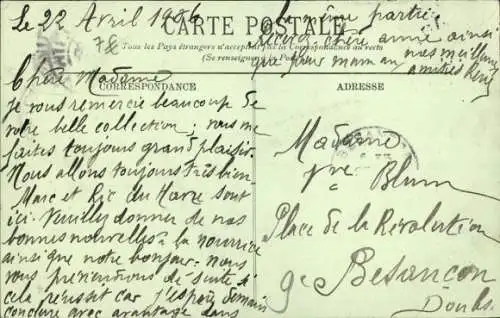 Le 22 Avril 1906
CARTE POSTALE
Tous les Pays étrangers n'acceptent pas la Correspondance au recto
(Se renseigner à la Poste)
CORRESPONDANCE
ADRESSE
Chère Madame
Je vous remercie beaucoup de
votre belle collection ; vous me
faites toujours grand plaisir.
Nous allons toujours très bien.
Marc et du Havre sont
ici. Veuillez donner de nos
bonnes nouvelles à la nourrice
ainsi que notre bonjour. Nous
vous de suite si
cela réussit car j'espère demain
conclure avec avantage dans
partie
chère amie ainsi
que maman nos meilleures
amitiés
Madame
Vve Blum
Place de la Révolution
9c Besançon
Doubs.